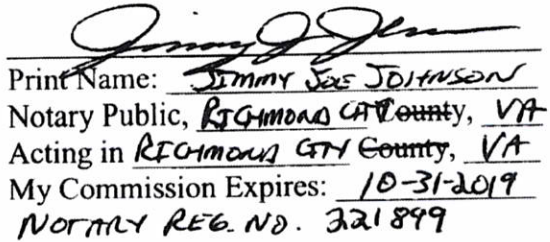 Print Name: JIMMY JOE JOHNSON
Notary Public, RICHMOND CITY County, VA
Acting in RICHMOND CITY County, VA
My Commission Expires: 10-31-2019
NOTARY REG. NO. 321899